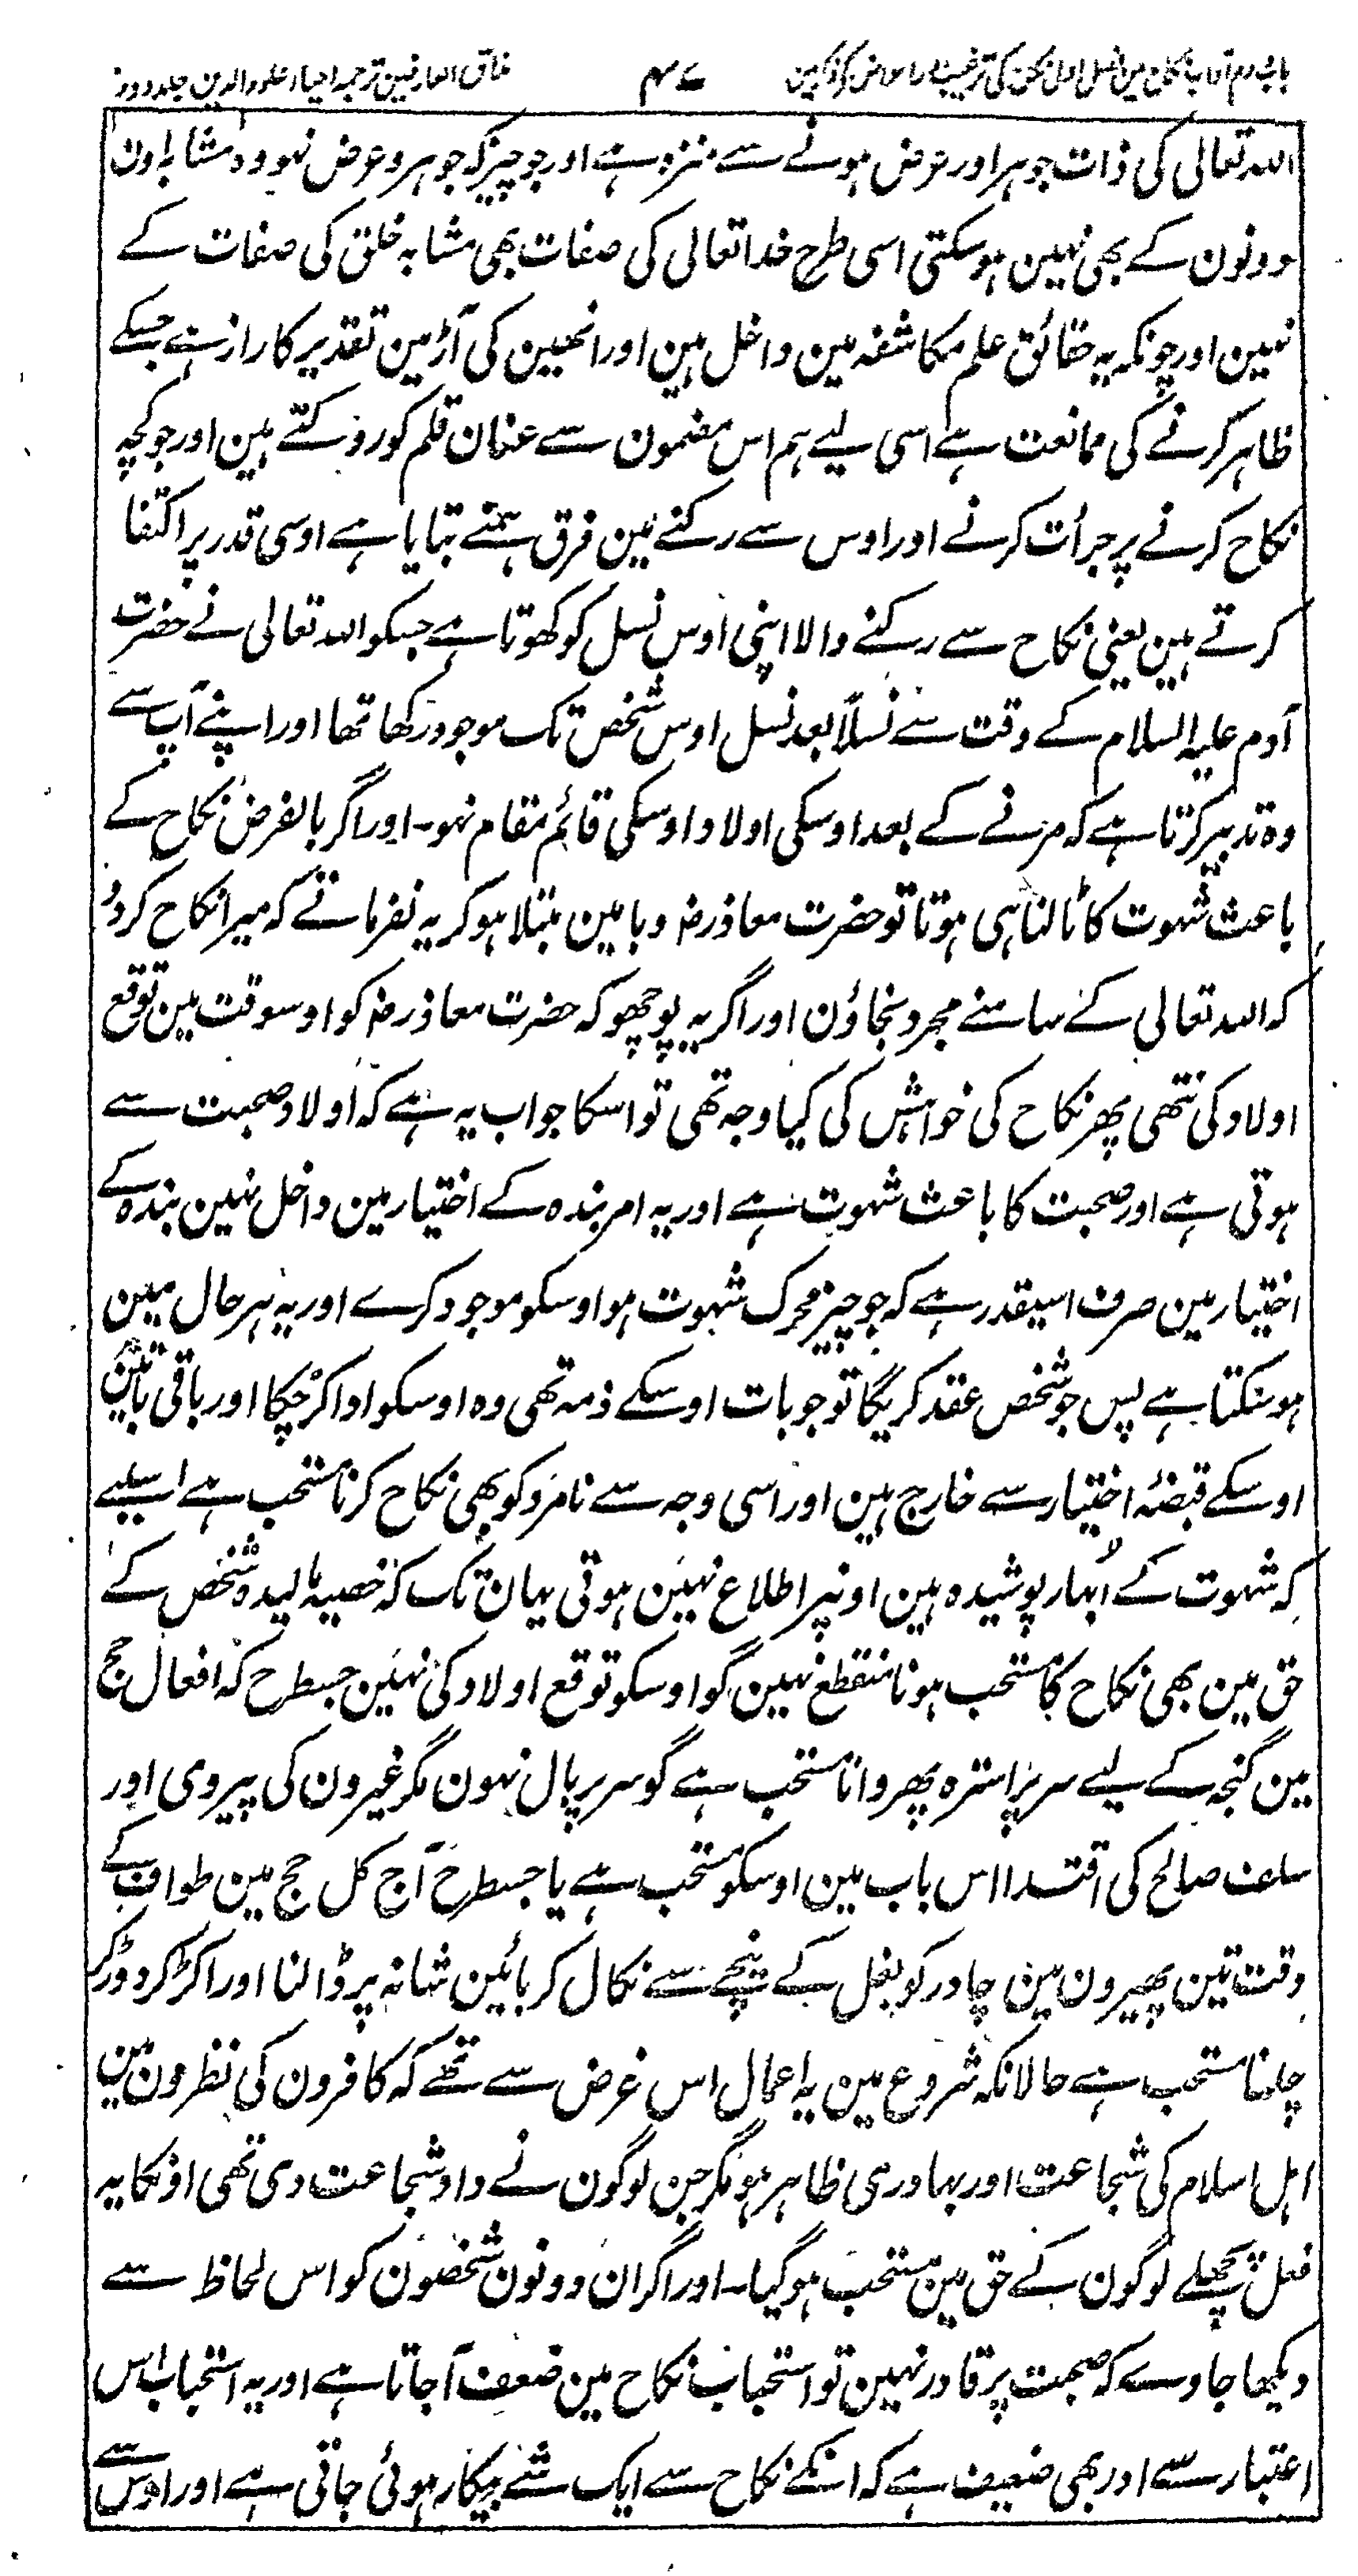 مذاق العارفین ترجمہ احیاء علوم الدین جلد دوم
اللہ تعالی کی ذات جوہر اور عرض ہونے سے منزہ ہے اور جو چیز کہ جوہر و عرض نہو وہ مشابہ اون
دونون کے بھی نہین ہو سکتی اسی طرح خدا تعالی کی صفات بھی مشابہ خلق کی صفات کے
نہین اور چونکہ یہ حقائق علم مکاشفہ مین داخل ہین اور انھین کی آڑ مین تقدیر کا راز ہے جسکے
ظاہر کرنے کی ممانعت ہے اسی لیے ہم اس مضمون سے عنان قلم کو روکتے ہین اور جو کچھ
نکاح کرنے پر جرأت کرنے اور اوس سے رکنے مین فرق ہمنے بتایا ہے اوسی قدر پر اکتفا
کرتے ہین یعنی نکاح سے رکنے والا اپنی اوس نسل کو کھوتا ہے جسکو اللہ تعالی نے حضرت
آدم علیہ السلام کے وقت سے نسلاً بعد نسل اوس شخص تک موجود رکھا تھا اور اپنے آپ سے
وہ تدبیر کرتا ہے کہ مرنے کے بعد اوسکی اولاد اوسکی قائم مقام نہو۔ اور اگر بالفرض نکاح کے
باعث شہوت کا ٹالنا ہی ہوتا تو حضرت معاذ رضہ وبا مین مبتلا ہو کر یہ نفرماتے کہ میرا نکاح کردو
کہ اللہ تعالی کے سامنے مجرد نجاؤن اور اگر یہ پوچھو کہ حضرت معاذ رضہ کو اوسوقت مین توقع
اولاد کی نتھی پھر نکاح کی خواہش کی کیا وجہ تھی تو اسکا جواب یہ ہے کہ اولاد صحبت سے
ہوتی ہے اور صحبت کا باعث شہوت ہے اور یہ امر بندہ کے اختیار مین داخل نہین بندہ کے
اختیار مین صرف اسیقدر ہے کہ جو چیز محرک شہوت ہو اوسکو موجود کرے اور یہ ہر حال مین
ہو سکتا ہے پس جو شخص عقد کریگا تو جو بات اوسکے ذمہ تھی وہ اوسکو ادا کر چکا اور باقی باتین
اوسکے قبضۂ اختیار سے خارج ہین اور اسی وجہ سے نامرد کو بھی نکاح کرنا مستحب ہے اسلیے
کہ شہوت کے اُبھار پوشیدہ ہین اونپر اطلاع نہین ہوتی یہان تک کہ خصیہ مالیدہ شخص کے
حق مین بھی نکاح کا مستحب ہونا منقطع نہین گو اوسکو توقع اولاد کی نہین جسطرح کہ افعال حج
مین گنجہ کے لیے سر پر استرہ پھروانا مستحب ہے گو سر پر بال نہون مگر غیرون کی پیروی اور
سلف صالح کی اقتدا اس باب مین اوسکو مستحب ہے یا جسطرح آج کل حج مین طواف کے
وقت تین پھیرون مین چادر کو بغل کے نیچے سے نکال کر بائین شانہ پر ڈالنا اور اکڑ کر دوڑ کر
چلنا مستحب ہے حالانکہ شروع مین یہ اعمال اس غرض سے تھے کہ کافرون کی نظرون مین
اہل اسلام کی شجاعت اور بہادری ظاہر ہو مگر جن لوگون نے داد شجاعت دی تھی اونکا یہ
فعل پچھلے لوگون کے حق مین مستحب ہو گیا۔ اور اگر ان دونون شخصون کو اس لحاظ سے
دیکھا جاوے کہ صحبت پر قادر نہین تو استحباب نکاح مین ضعف آ جاتا ہے اور یہ استحباب اس
اعتبار سے اور بھی ضعیف ہے کہ انکے نکاح سے ایک شے بیکار ہوئی جاتی ہے اور اوس سے